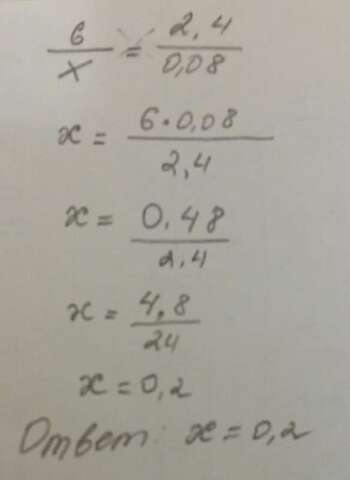 6/x = 2,4/0,08
x = 6·0,08/2,4
x = 0,48/2,4
x = 4,8/24
x = 0,2
Ответ: x = 0,2